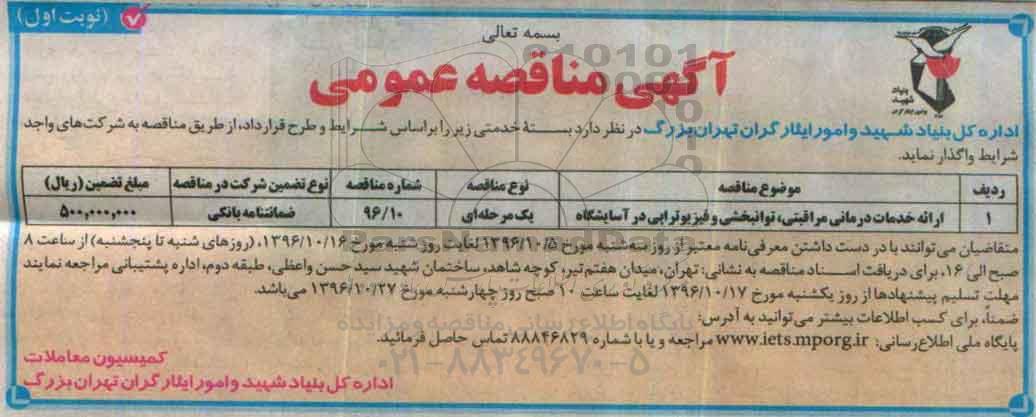 (نوبت اول)
بسمه تعالی
آگهی مناقصه عمومی
بنیاد
شهید
وامور ایثارگران
اداره کل بنیاد شهید وامور ایثارگران تهران بزرگ در نظر دارد بستهٔ خدمتی زیر را براساس شرایط و طرح قرارداد، از طریق مناقصه به شرکت‌های واجد
شرایط واگذار نماید.
ردیف موضوع مناقصه نوع مناقصه شماره مناقصه نوع تضمین شرکت در مناقصه مبلغ تضمین (ریال)
۱ ارائه خدمات درمانی مراقبتی، توانبخشی و فیزیوتراپی در آسایشگاه یک مرحله‌ای ۹۶/۱۰ ضمانتنامه بانکی ۵۰۰,۰۰۰,۰۰۰
متقاضیان می‌توانند با در دست داشتن معرفی‌نامه معتبر از روز سه‌شنبه مورخ ۱۳۹۶/۱۰/۵ لغایت روز شنبه مورخ ۱۳۹۶/۱۰/۱۶، (روزهای شنبه تا پنجشنبه) از ساعت ۸
صبح الی ۱۶، برای دریافت اسناد مناقصه به نشانی: تهران، میدان هفتم‌تیر، کوچه شاهد، ساختمان شهید سید حسن واعظی، طبقه دوم، اداره پشتیبانی مراجعه نمایند
مهلت تسلیم پیشنهادها از روز یکشنبه مورخ ۱۳۹۶/۱۰/۱۷ لغایت ساعت ۱۰ صبح روز چهارشنبه مورخ ۱۳۹۶/۱۰/۲۷ می‌باشد.
ضمناً، برای کسب اطلاعات بیشتر می‌توانید به آدرس:
پایگاه ملی اطلاع‌رسانی: www.iets.mporg.ir مراجعه و یا با شماره ۸۸۸۴۶۸۲۹ تماس حاصل فرمائید.
پایگاه اطلاع رسانی مناقصه و مزایده
۰۲۱-۸۸۳۴۹۶۷۰-۵
کمیسیون معاملات
اداره کل بنیاد شهید وامور ایثارگران تهران بزرگ